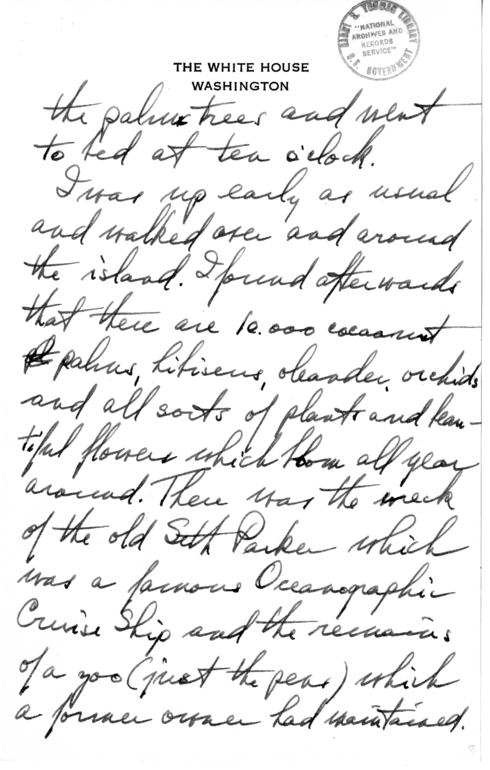 HARRY S. TRUMAN LIBRARY
"NATIONAL
ARCHIVES AND
RECORDS
SERVICE"
U.S. GOVERNMENT
THE WHITE HOUSE
WASHINGTON
the palm trees and went
to bed at ten o'clock.
I was up early as usual
and walked over and around
the island. I found afterwards
that there are 10.000 cocoanut
palms, hibiscus, oleander, orchids
and all sorts of plants and beau-
tiful flowers which bloom all year
around. There was the wreck
of the old Seth Parker which
was a famous Oceanographic
Cruise Ship and the remains
of a zoo (just the pens) which
a former owner had maintained.